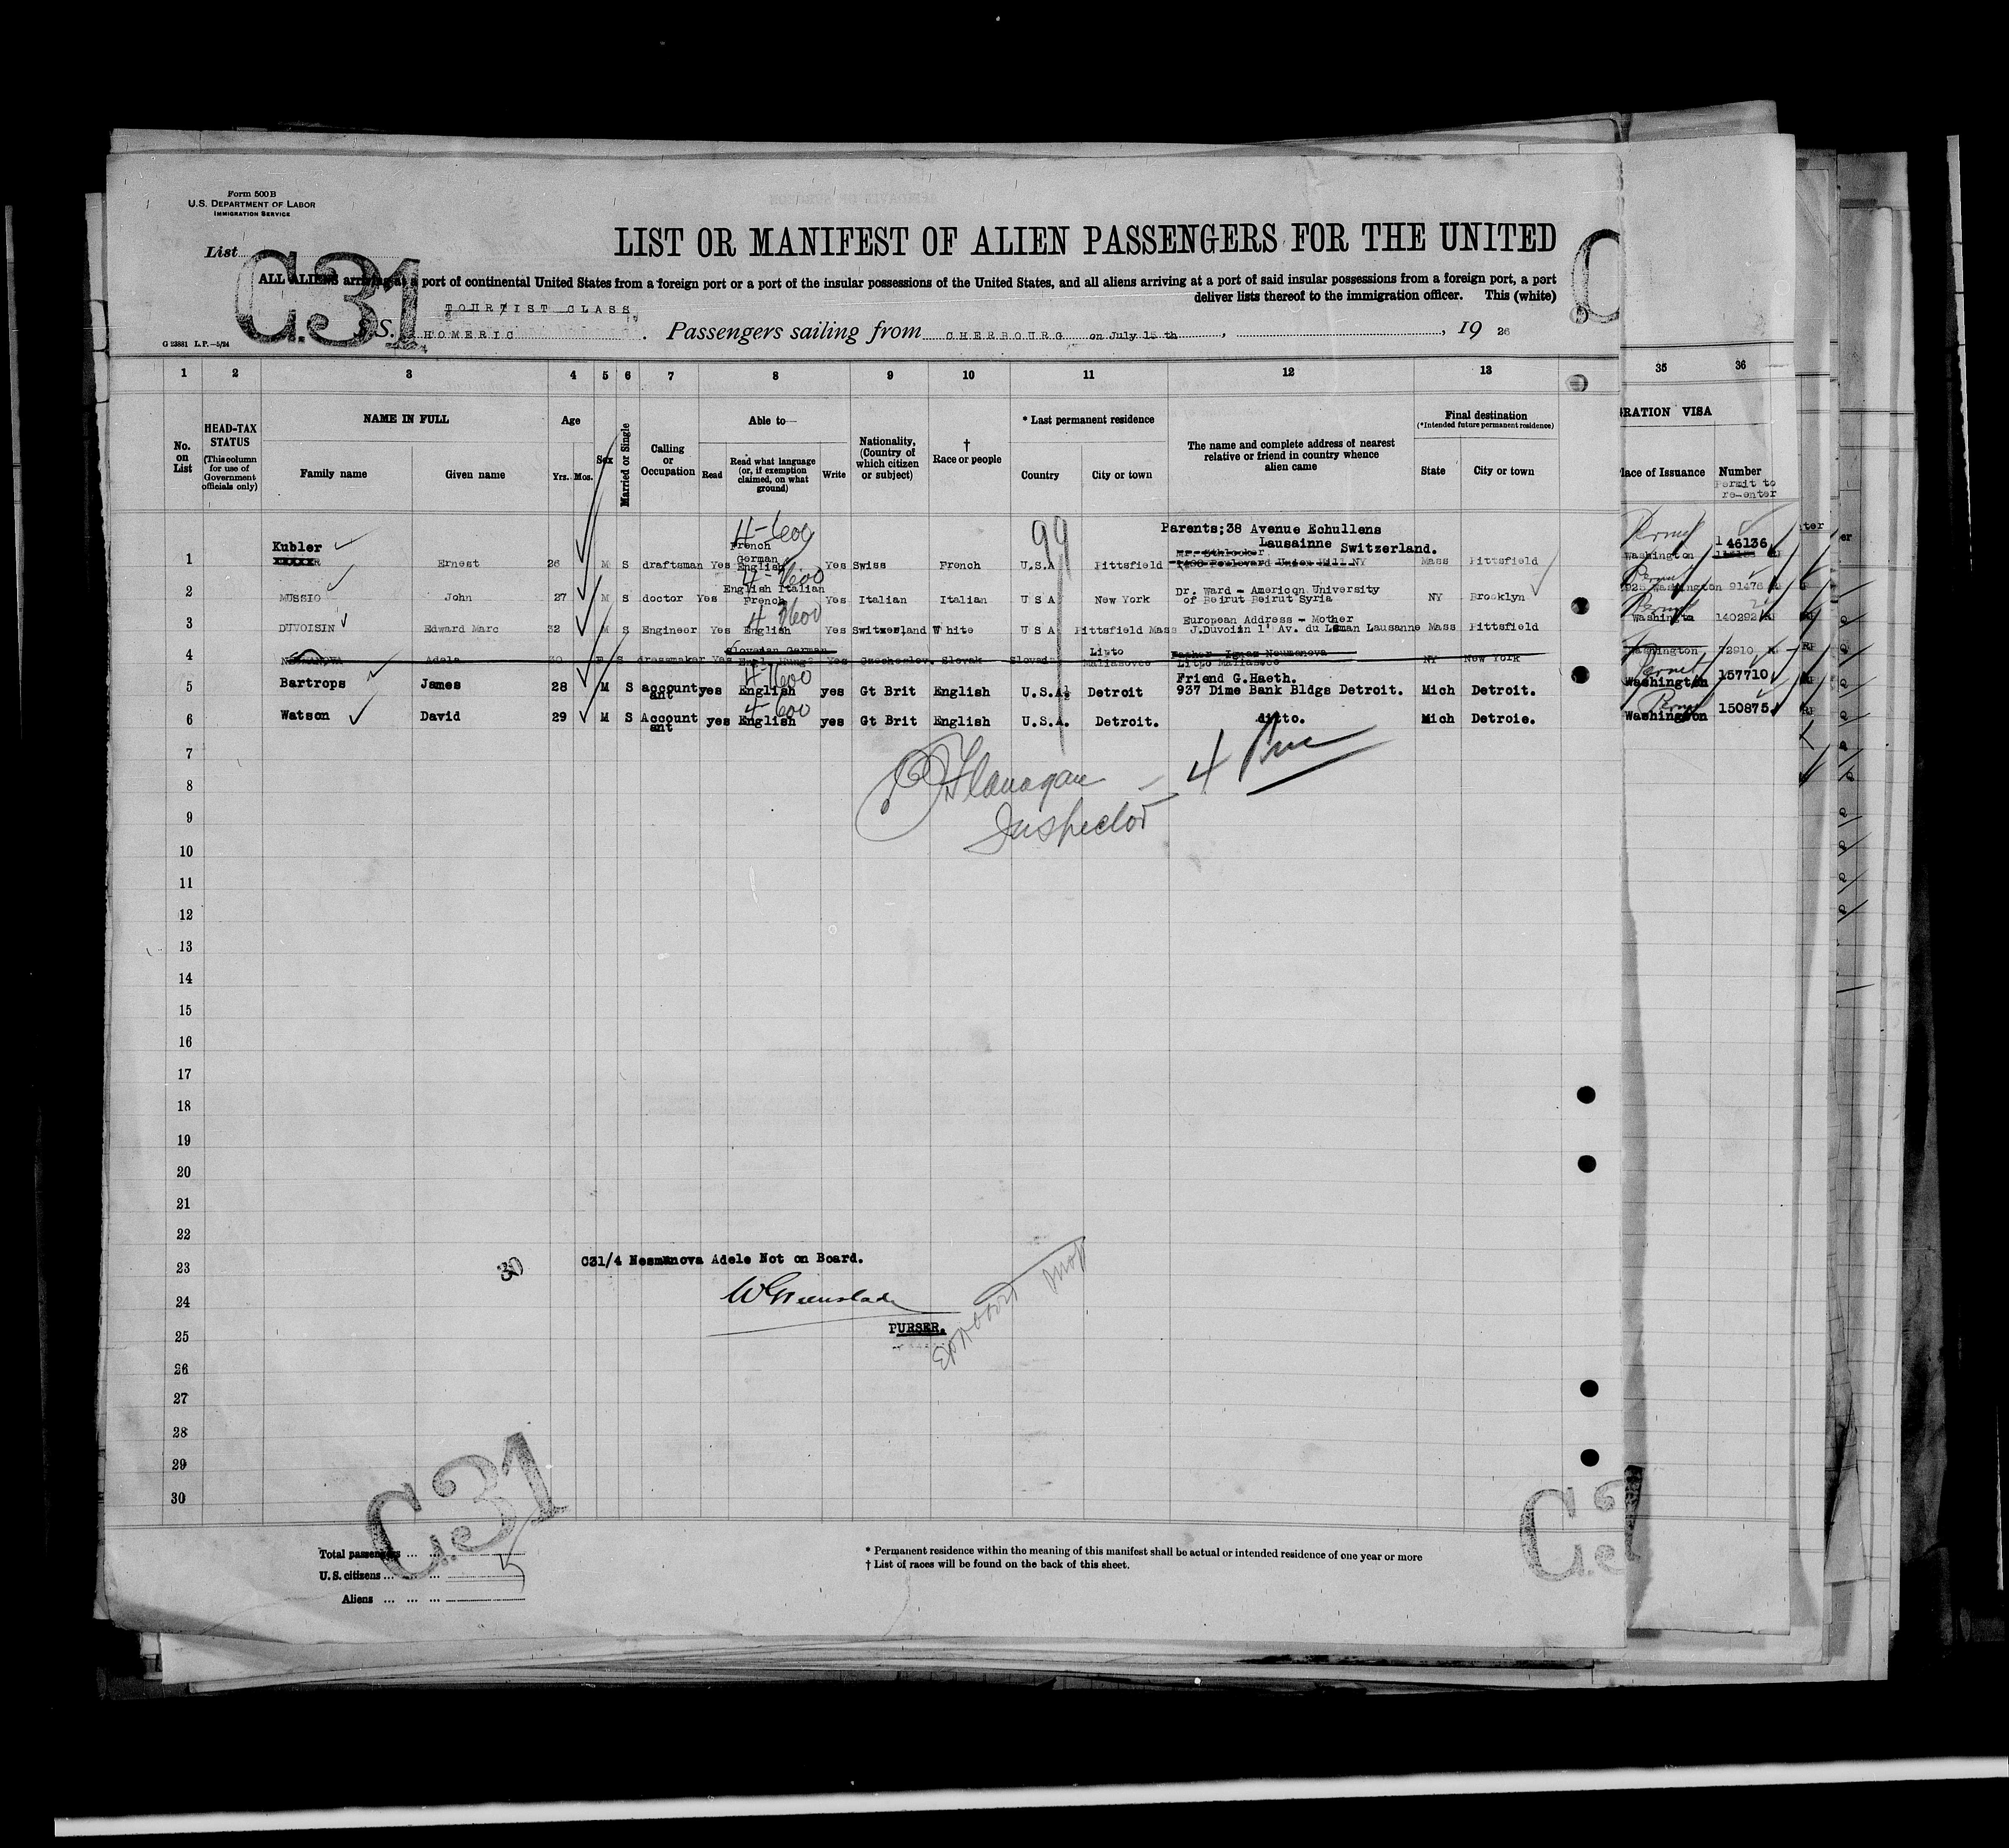 Form 500B
U.S. DEPARTMENT OF LABOR
IMMIGRATION SERVICE
List
C.31
LIST OR MANIFEST OF ALIEN PASSENGERS FOR THE UNITED
ALL ALIENS arriving at a port of continental United States from a foreign port or a port of the insular possessions of the United States, and all aliens arriving at a port of said insular possessions from a foreign port, a port
deliver lists thereof to the immigration officer. This (white)
TOURIST CLASS
S.S. HOMERIC. Passengers sailing from CHERBOURG on July 15 th, 19 26
G 23881 L.P.—5/24
1 2 3 4 5 6 7 8 9 10 11 12 13 35 36
No. on List
HEAD-TAX STATUS (This column for use of Government officials only)
NAME IN FULL
Family name Given name
Age
Yrs. Mos.
Sex
Married or Single
Calling or Occupation
Able to—
Read Read what language (or, if exemption claimed, on what ground) Write
Nationality, (Country of which citizen or subject)
† Race or people
* Last permanent residence
Country City or town
The name and complete address of nearest relative or friend in country whence alien came
Final destination
(*Intended future permanent residence)
State City or town
GRATION VISA
lace of Issuance Number
Permit to re-enter
Parents;38 Avenue Echullens
Lausainne Switzerland.
99
4-600
1 Kubler Ernest 26 M S draftsman Yes French German English Yes Swiss French U.S.A Pittsfield Mass Pittsfield Washington 146136
2 MUSSIO John 27 M S doctor Yes English Italian French Yes Italian Italian U S A New York Dr. Ward - American University of Beirut Beirut Syria NY Brooklyn Washington 91476
3 DUVOISIN Edward Marc 32 M S Engineer Yes English Yes Switzerland White U S A Pittsfield Mass European Address - Mother J.Duvoisin 1' Av. du Leman Lausanne Mass Pittsfield Washington 140292
4 Adela 30 F S dressmaker Yes Slovanian German Yes Czechoslov. Slovak Lipto Father Ignaz Neumanova NY New York Washington
5 Bartrops James 28 M S accountant yes English yes Gt Brit English U.S.A. Detroit Friend G.Haeth. 937 Dime Bank Bldgs Detroit. Mich Detroit. Washington 157710
6 Watson David 29 M S Accountant yes English yes Gt Brit English U.S.A. Detroit. ditto. Mich Detroie. Washington 150875
7
8
Flanagan
Inspector
9
10
11
12
13
14
15
16
17
18
19
20
21
22
23 30 C31/4 Nesmanova Adele Not on Board.
24
25 PURSER.
26
27
28
29
30
C.31
C.3
Total passengers ... ...
U.S. citizens ... ... ...
Aliens ... ... ...
* Permanent residence within the meaning of this manifest shall be actual or intended residence of one year or more
† List of races will be found on the back of this sheet.